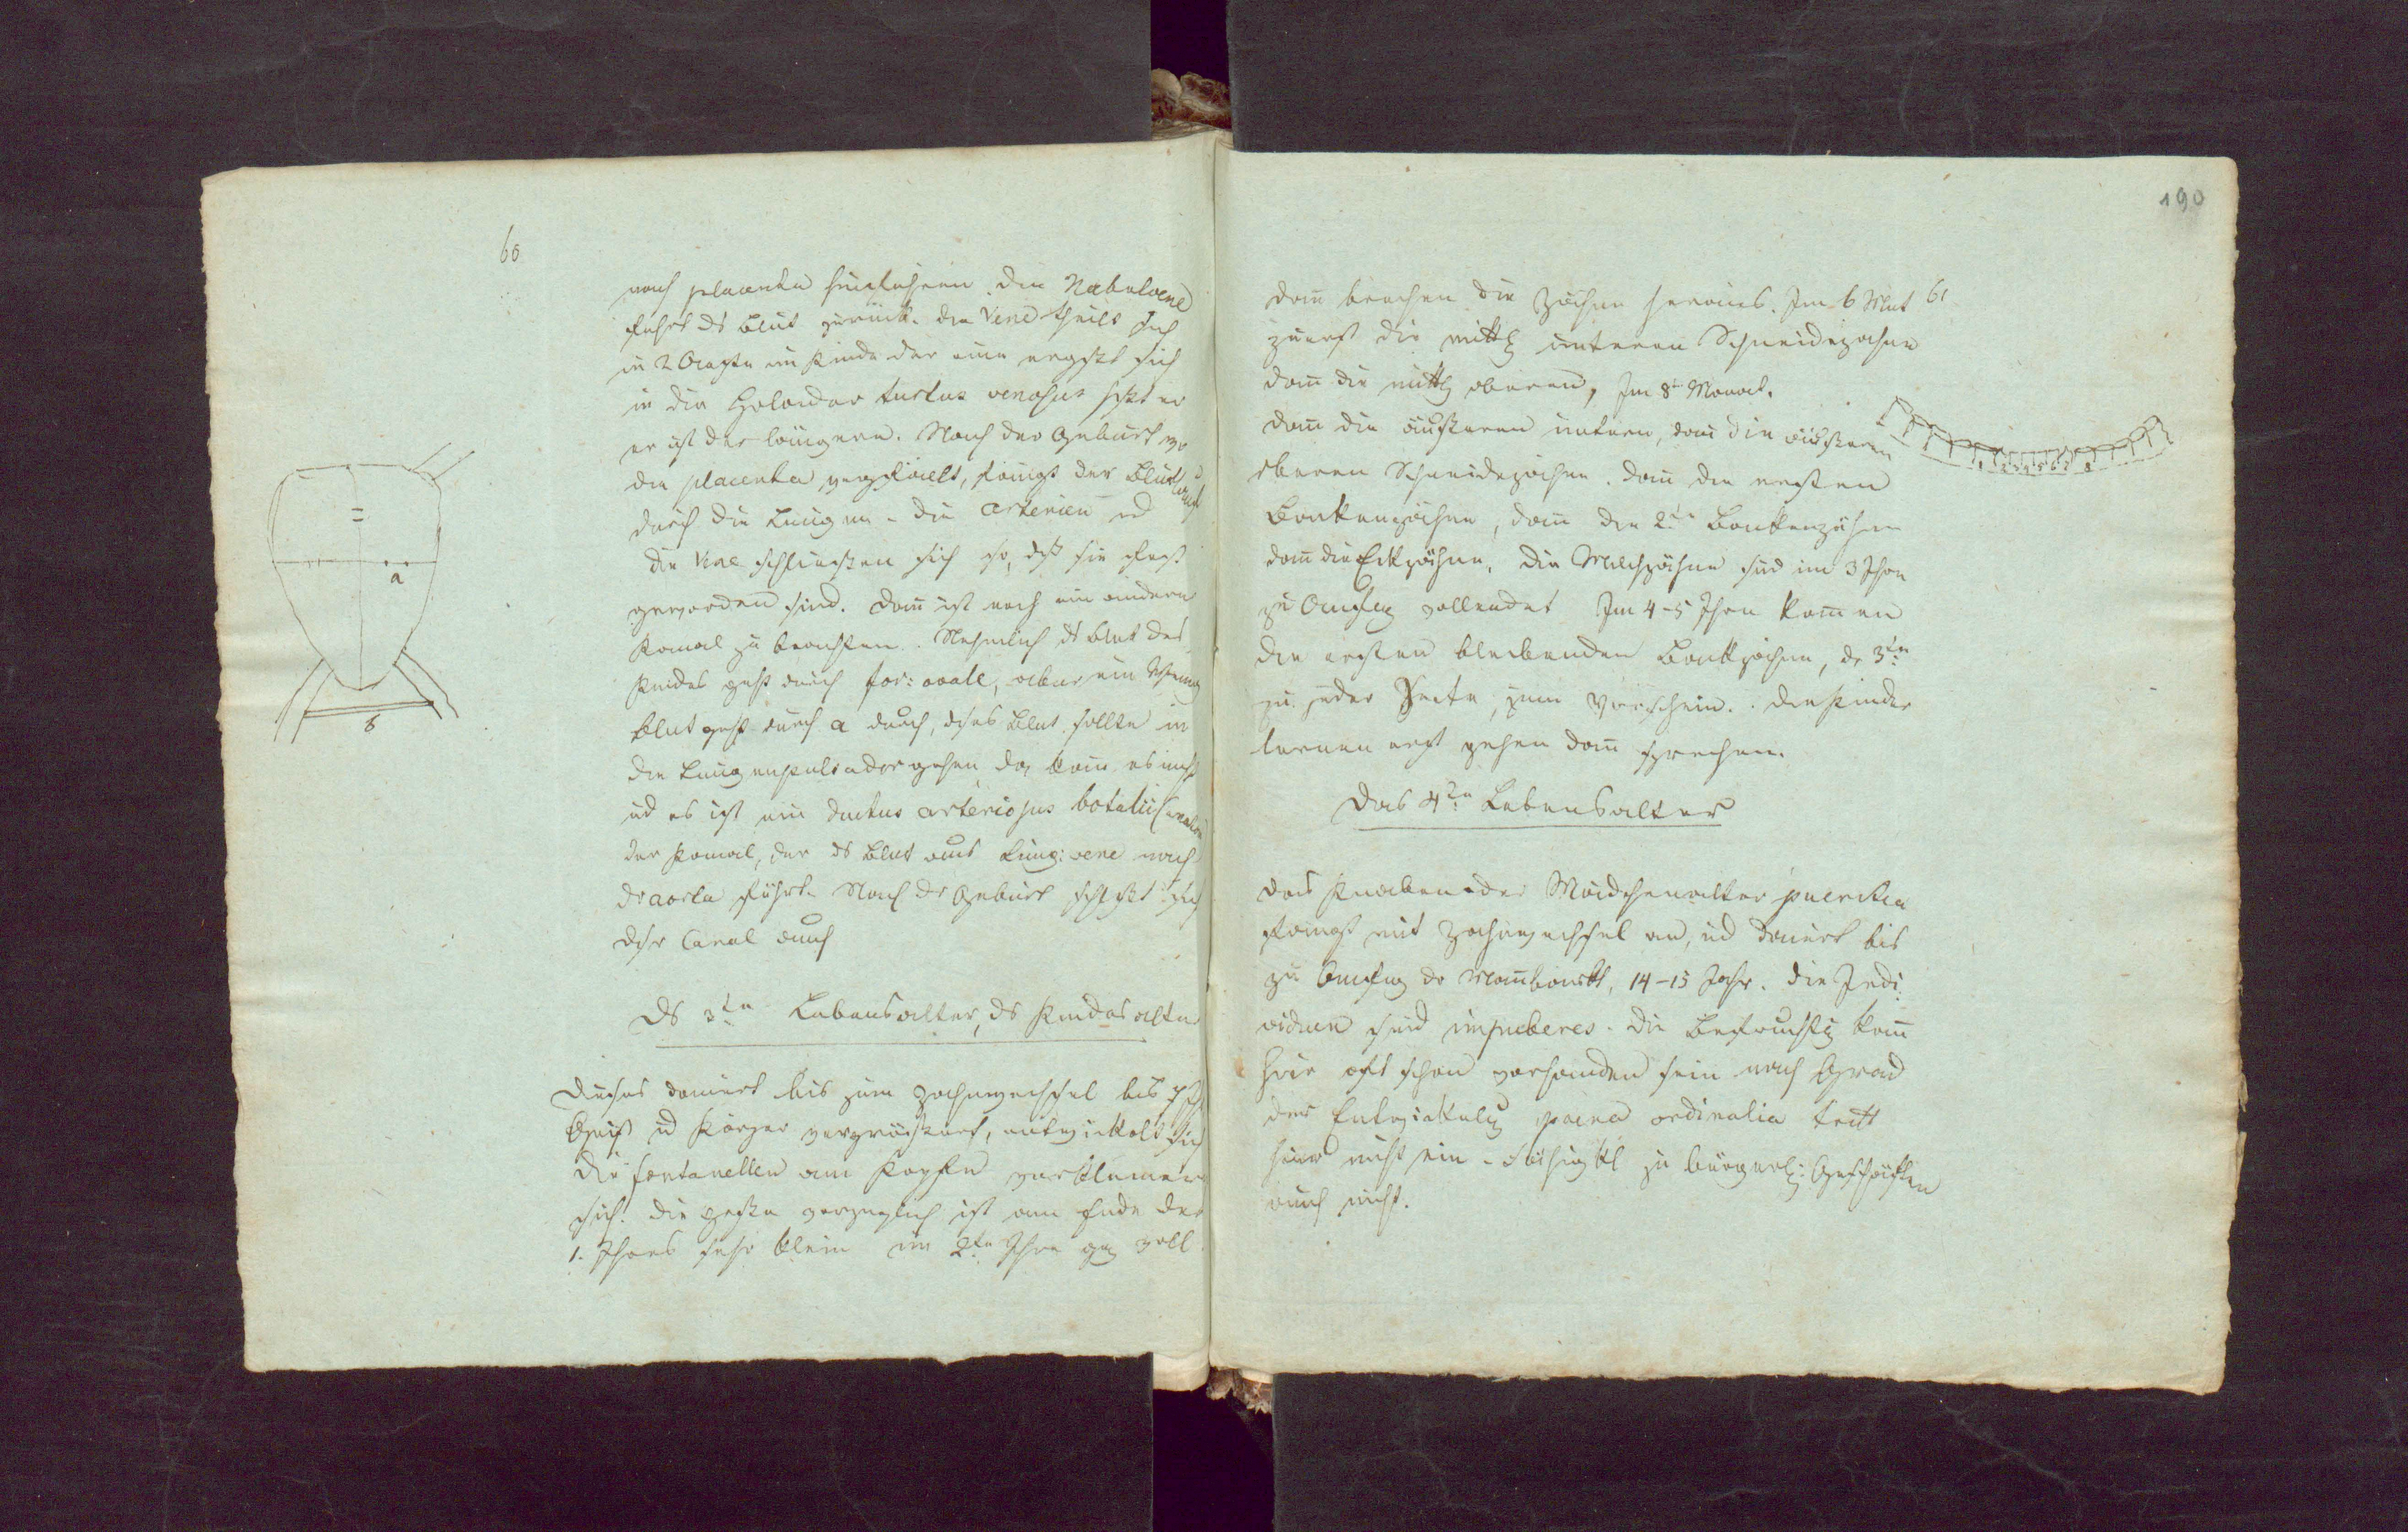 60
nach placenta hinführen. Die Nabelvene
führt ds Blut zurück. Die Vene theilt sich
in 2 Aeste im Kinde der eine ergßt sich
in die Holader ductus venosus hßt er
er ist der längere. Nach der Geburt wo
die placenta wegfällt, fängt der Blutlauf
durch die Lungen - die Arterien ud
die Vene schließen sich so, dß sie fest
geworden sind. Dann ist noch ein anderer
Kanal zu beachten. Nehmlich ds Blut des
Kindes geht durch for: ovale, aber ein wenig
Blut geht durch a durch, dises Blut sollte in
die Lungenpulsader gehen, das kann es nicht
ud es ist ein ductus arteriosus botalii
der Kanal, der ds Blut aus Lung: vene nach
dr aorta führt. Nach dr Geburt schlßt sich
disr Canal auch
a
8
Ds 3te Lebensalter, ds Kindesalter
Dieses dauert bis zum Zahnwechsel bis 7 J
Geist ud Körper vergrößert, entwickelt sich
Die fontanellen am Kopfe verkleinern
sich. Die größte vorzüglich ist am Ende des
1. Jhres sehr klein im 2ten Jhre gz voll
190
61
dann brechen die Zähne heraus. Im 6 Mnt
zuerst die mittl unteren Schneidezähne
dann die mittl oberen, Im 8t Monat.
dann die äußeren unteren, dann die äußeren
oberen Schneidezähne. dann die ersten
Backenzähne, dann die 2te Backenzähne
dann die Eckzähne. Die Milchzähne sind im 3 Jhre
zu Anfag vollendet Im 4-5 Jhre kommen
die ersten bleibenden Backzähne, de 3ten
zu jeder Seite, zum Vorschein. Die Kinder
lernen erst gehen dann sprechen.
Das 4te Lebensalter
das Knaben oder Mädchenalter pueritia
fängt mit Zahnwechsel an, ud dauert bis
zu Anfag dr Mannbarkt, 14-15 Jahr. Die Indi
viduen sind impuberes. Die Befruchtg kann
hier oft schon vorhanden sein nach Grad
der Entwickelg poena ordinalia tritt
hier nicht ein - Fähigkt zu bürgerl: Geschäften
auch nicht.